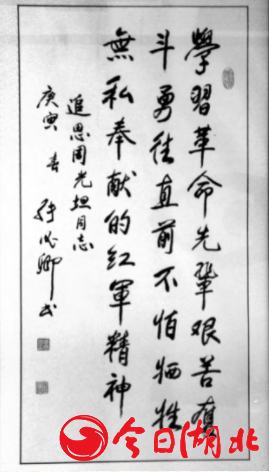 學習革命先輩艰苦奮
斗勇往直前不怕牺牲
無私奉献的红軍精神
追思周光坦同志
庚寅春
今日湖北